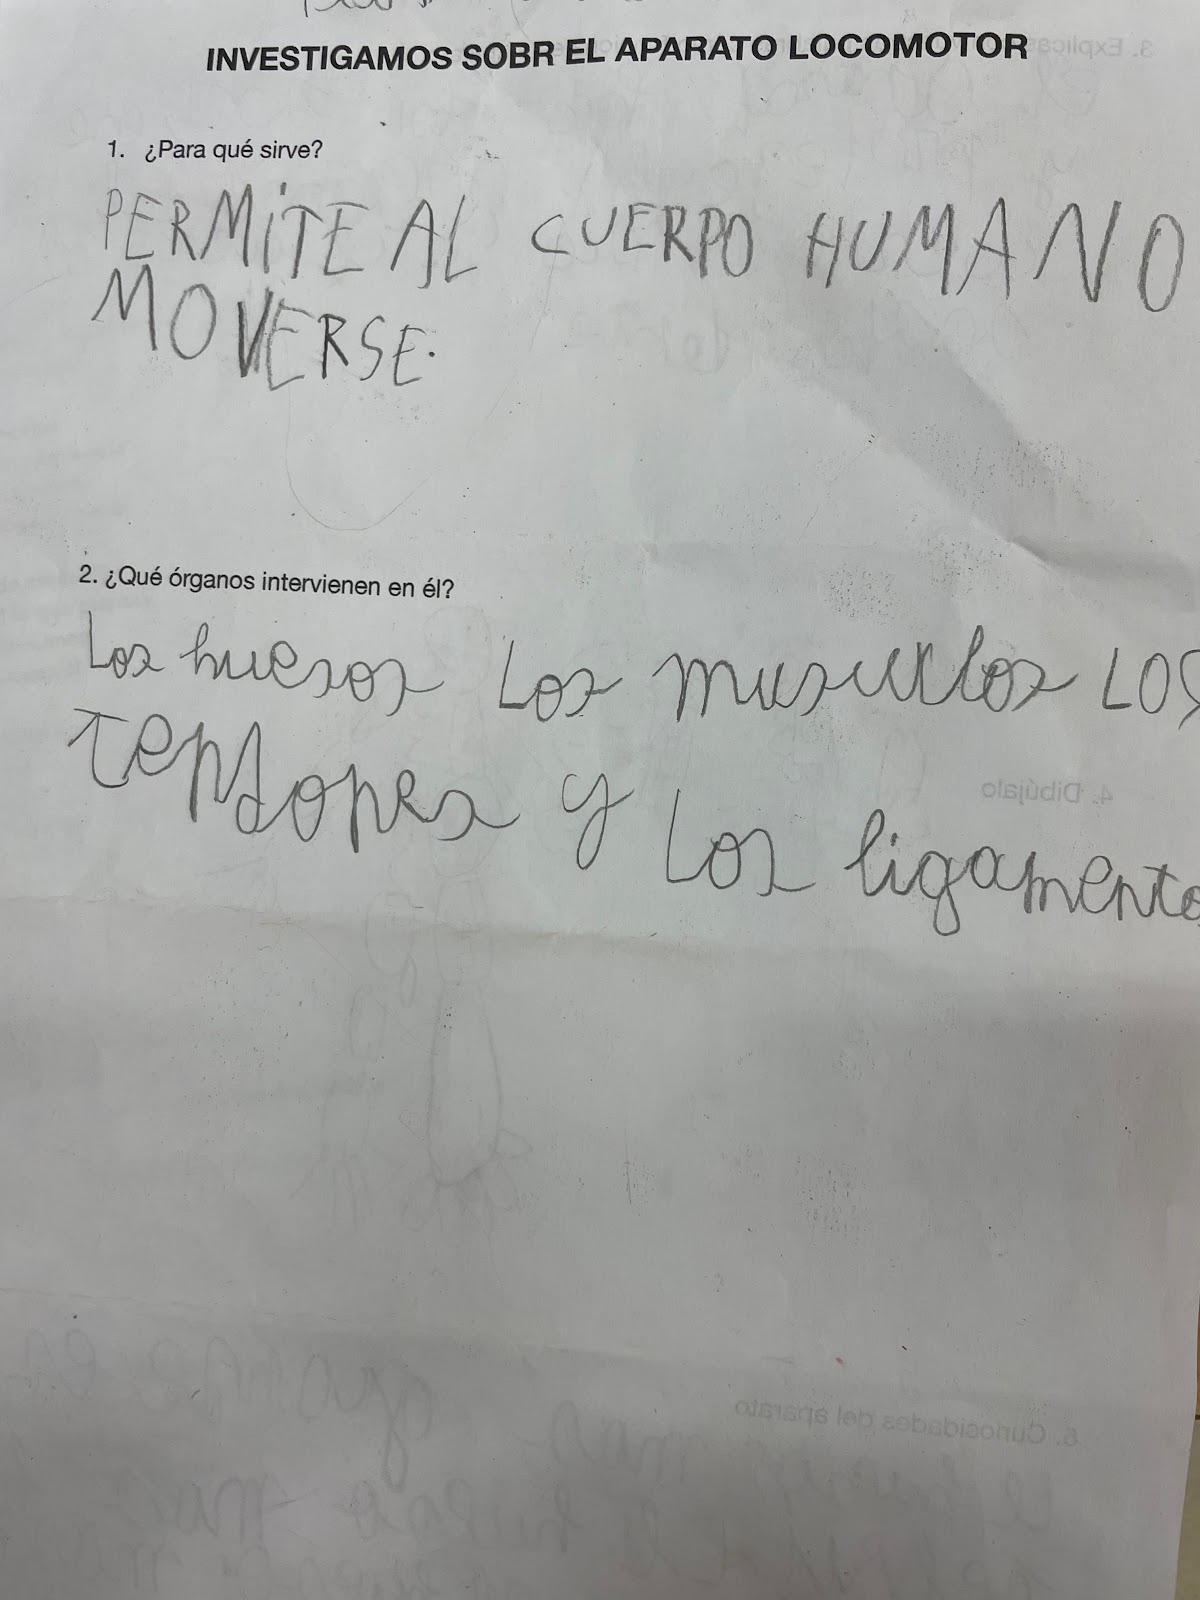 INVESTIGAMOS SOBR EL APARATO LOCOMOTOR
1. ¿Para qué sirve?
PERMITE AL CUERPO HUMANO
MOVERSE.
2. ¿Qué órganos intervienen en él?
Los huesos Los musculos LOS
Tendones y Los ligamento
4. Dibújalo
6. Curiosidades del aparato